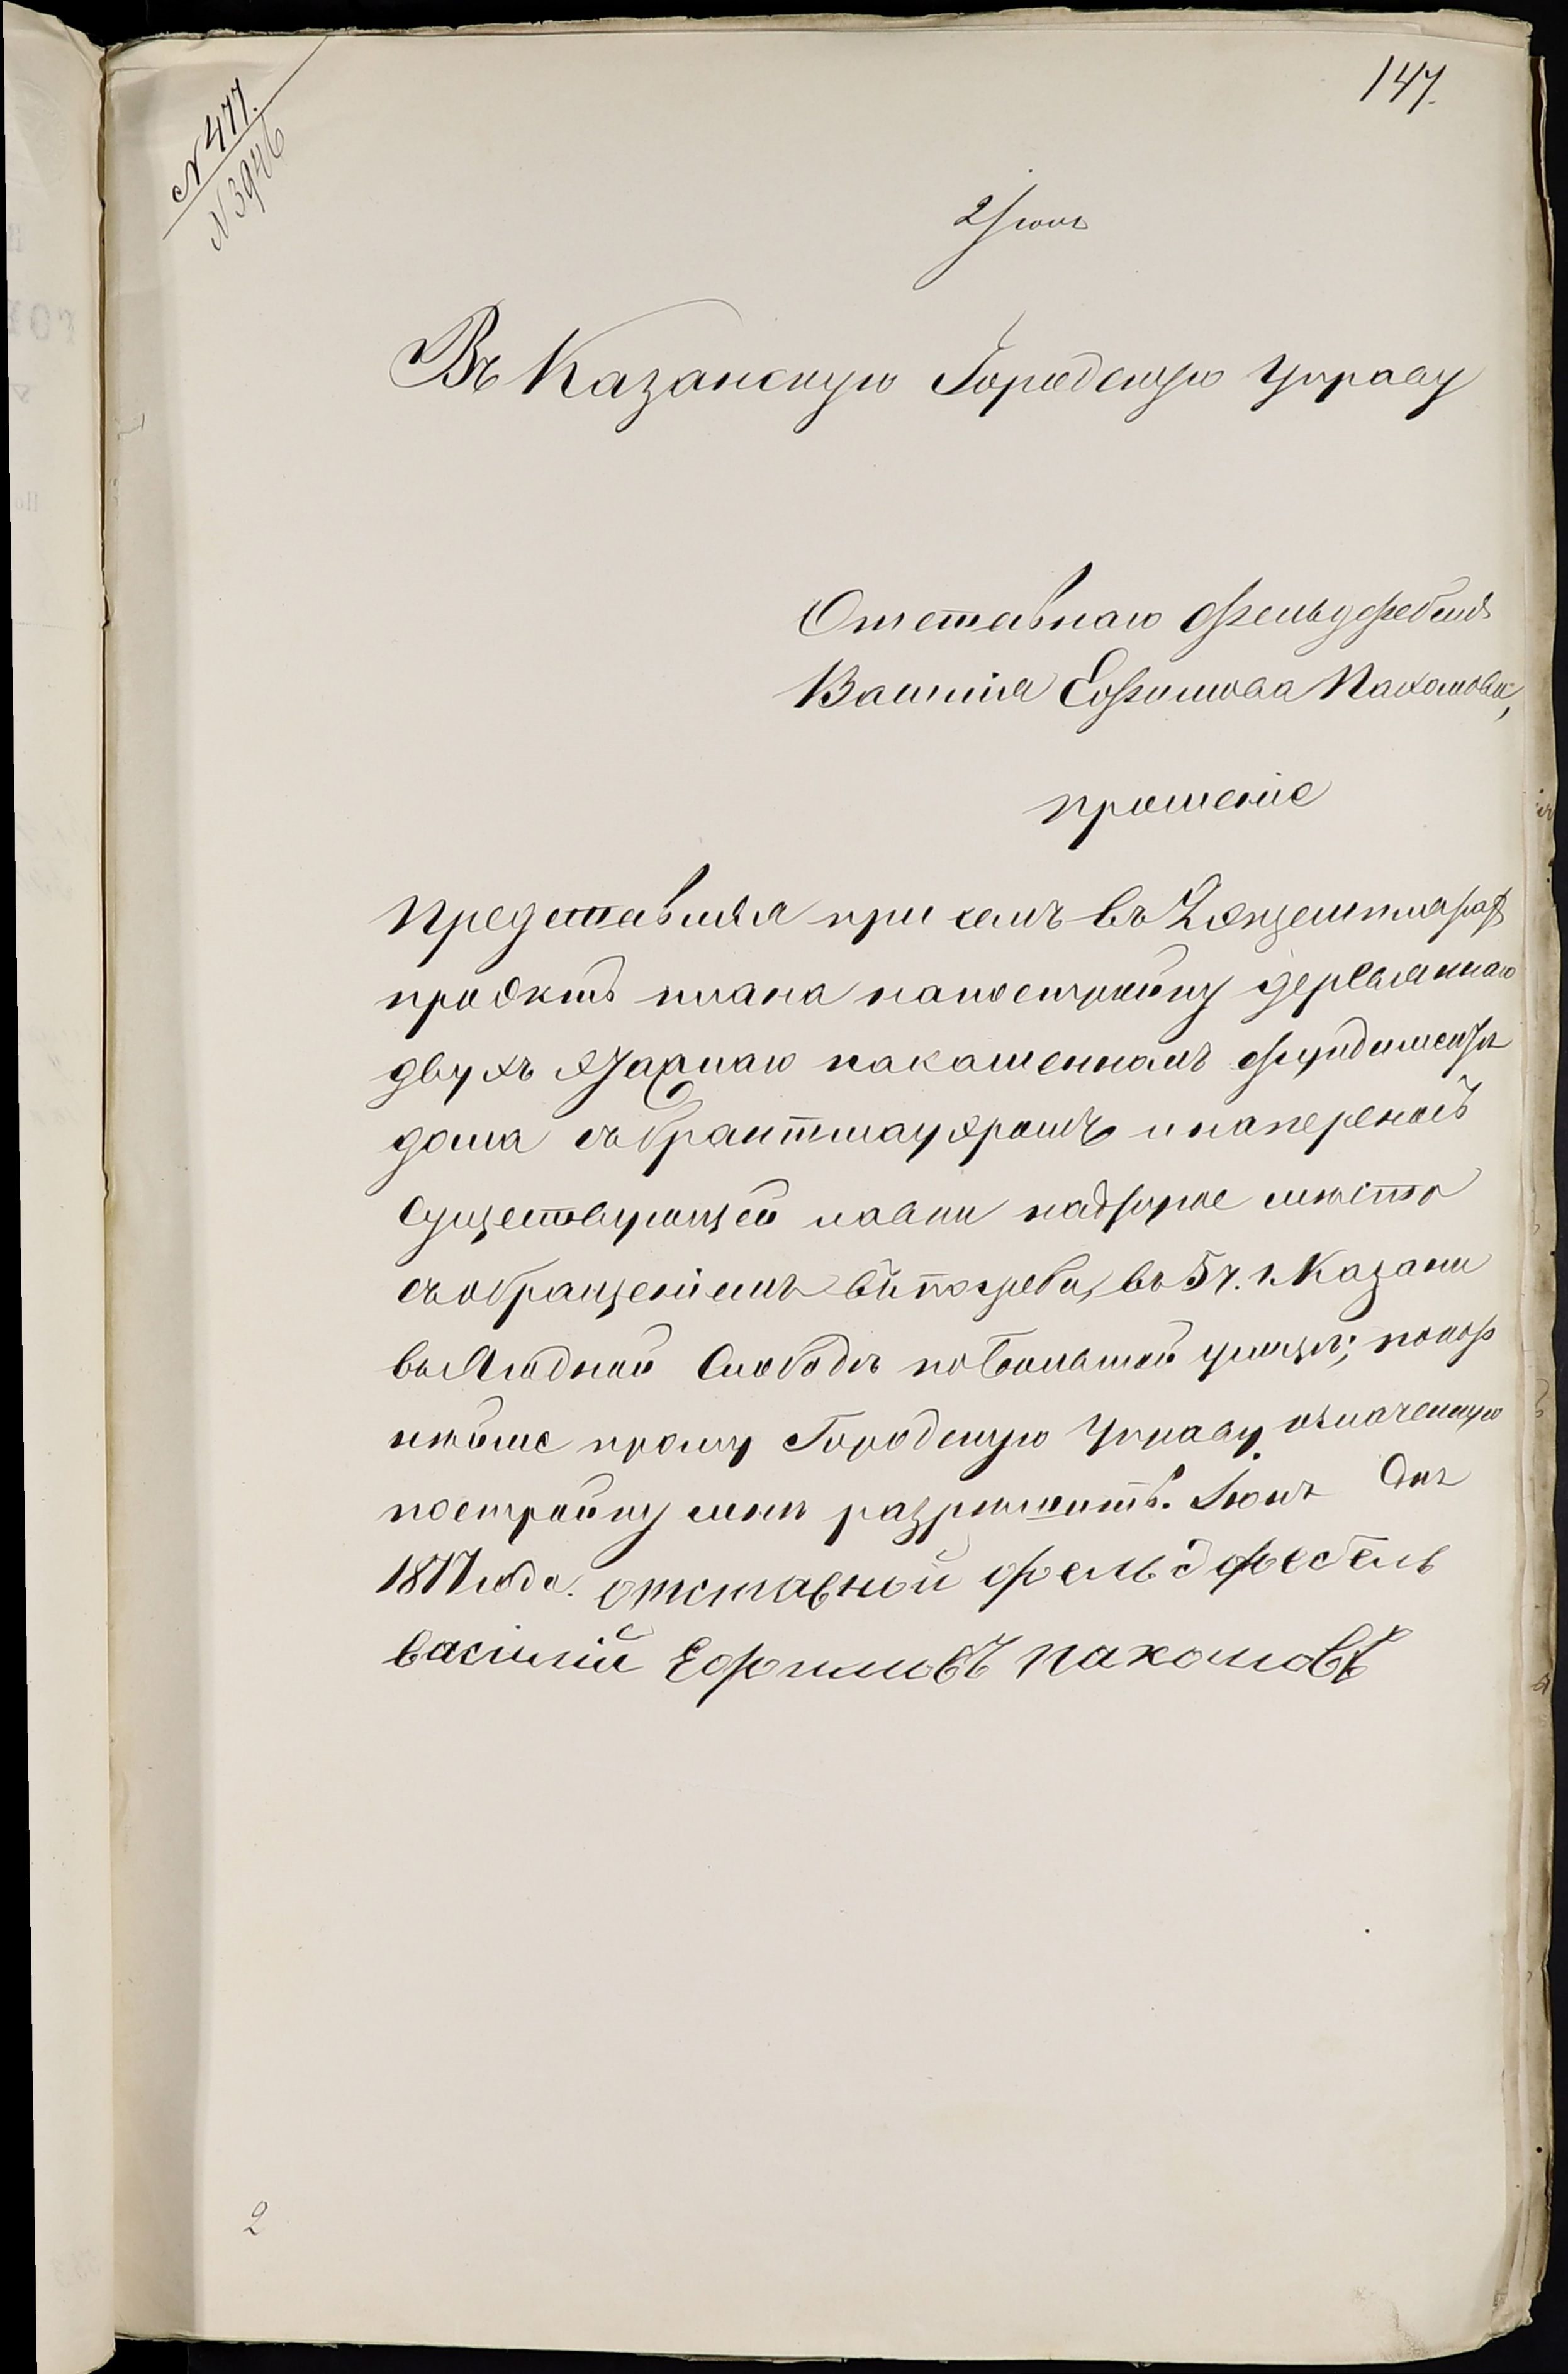 147.
N 477.
N 3946
2 Июня
Въ Казанскую Городскую Управу
Отставнаго Фельдфебеля
Василія Ефимова Пахомова,
прошеніе
Представляя при семъ въ 2 экземплярах
проэктъ плана на постройку деревяннаго
двухъ этажнаго на каменномъ фундаменте
дома съ брантмауэромъ и на переносъ
существующей лавки на другое место
съ обращеніемъ въ погребъ, въ 5 ч. г. Казани
въ Ягодной Слободѣ по Большой улицѣ; покор
нѣйше прошу Городскую Управу означенную
постройку мнѣ разрѣшить. Іюня дня
1877 года. отставной фельдфебель
василий Ефимовъ пахомовъ
2